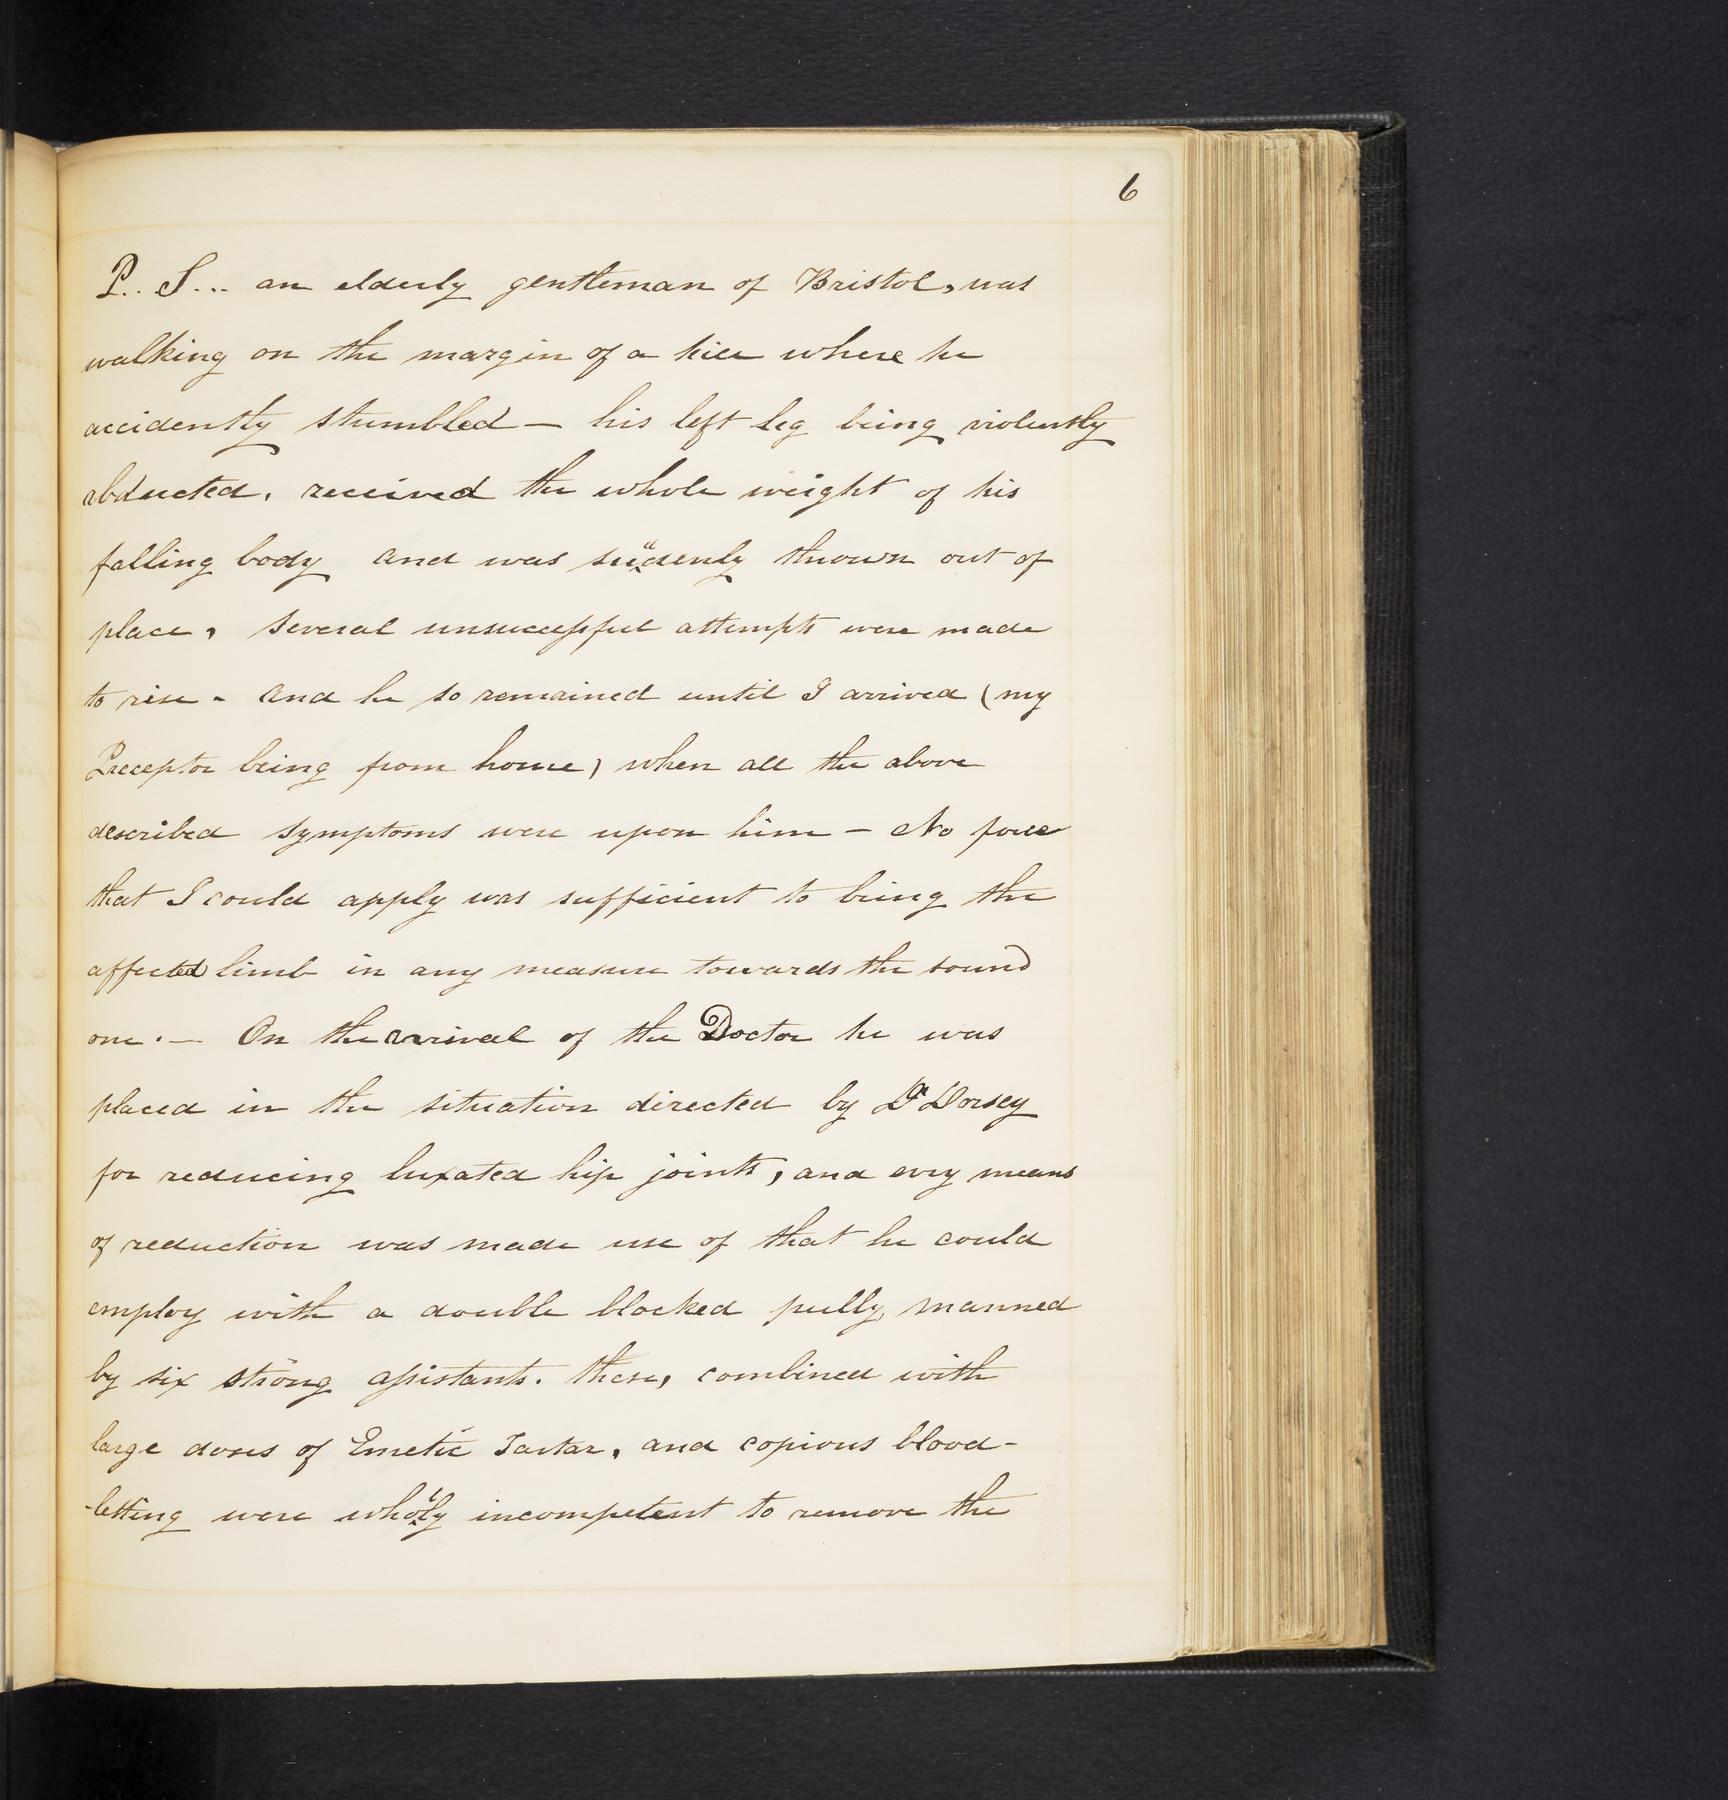 6
P.. S... an elderly gentleman of Bristol, was
walking on the margin of a hill where he
accidently stumbled — his left leg being violently
abducted, received the whole weight of his
falling body and was suddenly thrown out of
place, several unsuccessful attempts were made
to rise - and he so remained until I arrived (my
Preceptor being from home) when all the above
described symptoms were upon him — No force
that I could apply was sufficient to bring the
affected limb in any measure towards the sound
one. — On the arrival of the Doctor he was
placed in the situation directed by Dr Dorsey
for reducing luxated hip joints, and evry means
of reduction was made use of that he could
employ with a double blocked pully, manned
by six strong assistants. these, combined with
large doses of Emetic Tartar, and copious blood-
-letting were wholly incompetent to remove the